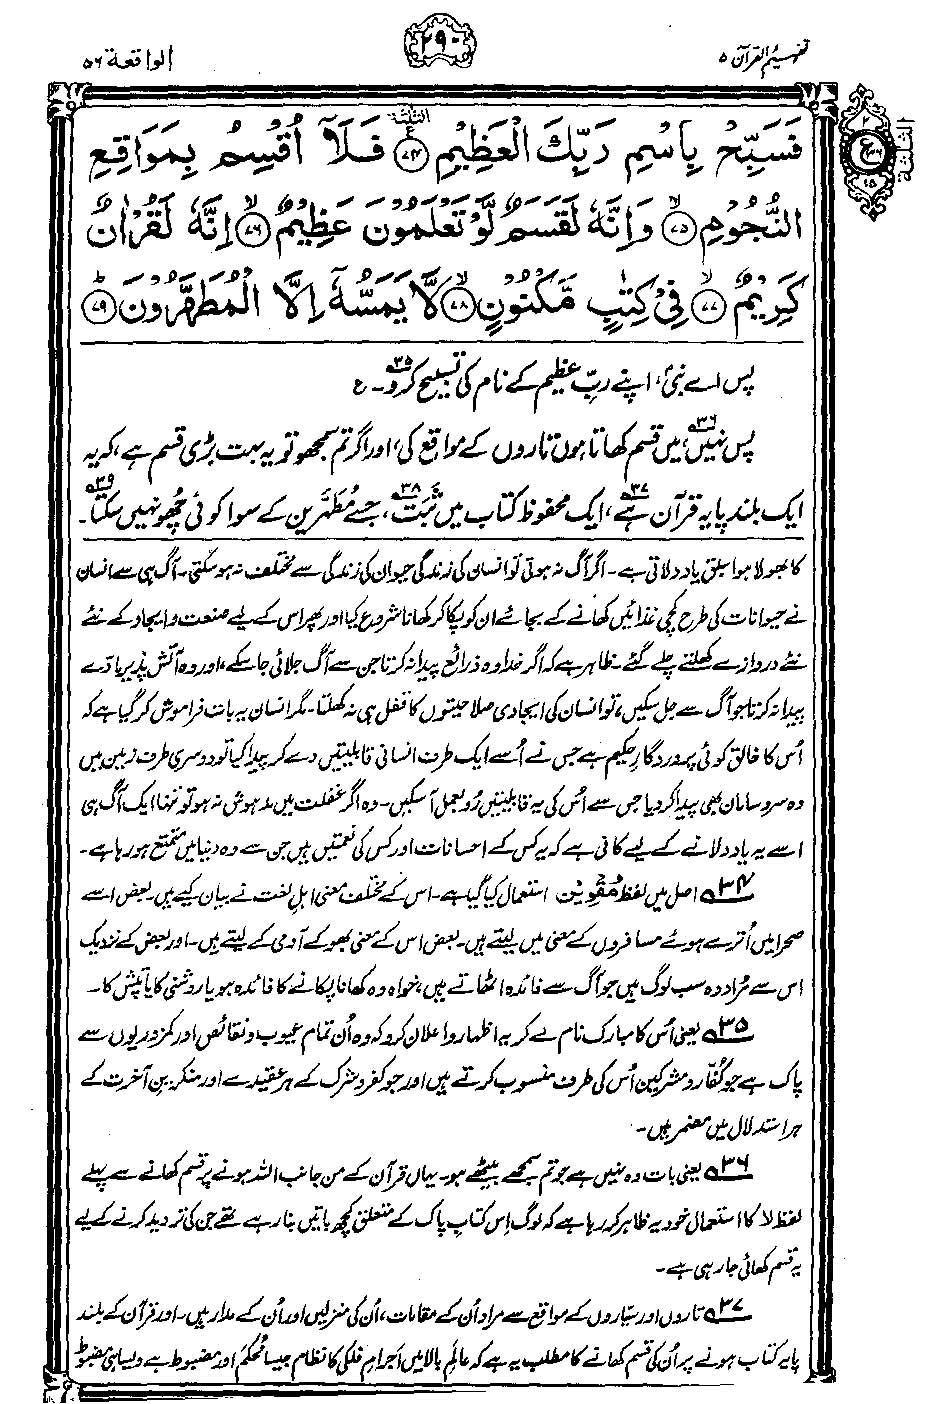 تفہیم القرآن ۵
۲۹۰
الواقعة ۵۶
فَسَبِّحْ بِاسْمِ رَبِّكَ الْعَظِيْمِ ﴿۷۴﴾ فَلَاۤ اُقْسِمُ بِمَوٰقِعِ
النُّجُوْمِ ﴿۷۵﴾ وَاِنَّهٗ لَقَسَمٌ لَّوْ تَعْلَمُوْنَ عَظِيْمٌ ﴿۷۶﴾ اِنَّهٗ لَقُرْاٰنٌ
كَرِيْمٌ ﴿۷۷﴾ فِيْ كِتٰبٍ مَّكْنُوْنٍ ﴿۷۸﴾ لَّا يَمَسُّهٗۤ اِلَّا الْمُطَهَّرُوْنَ ﴿۷۹﴾
پس اے نبیؐ، اپنے ربِّ عظیم کے نام کی تسبیح کرو۳۵۔ ع
پس نہیں۳۶، میں قسم کھاتا ہوں تاروں کے مواقع کی، اور اگر تم سمجھو تو یہ بہت بڑی قسم ہے، کہ یہ
ایک بلند پایہ قرآن ہے۳۷، ایک محفوظ کتاب میں ثبت۳۸، جسے مُطَہَّرین کے سوا کوئی چھو نہیں سکتا۳۹۔
کا بھولا ہوا سبق یاد دلاتی ہے۔ اگر آگ نہ ہوتی تو انسان کی زندگی حیوان کی زندگی سے مختلف نہ ہو سکتی۔ آگ ہی سے انسان
نے حیوانات کی طرح کچی غذائیں کھانے کے بجائے ان کو پکا کر کھانا شروع کیا اور پھر اس کے لیے صنعت و ایجاد کے نئے
نئے دروازے کھلتے چلے گئے۔ ظاہر ہے کہ اگر خدا وہ ذرائع پیدا نہ کرتا جن سے آگ جلائی جا سکے، اور وہ آتش پذیر مادّے
پیدا نہ کرتا جو آگ سے جل سکیں، تو انسان کی ایجادی صلاحیتوں کا قفل ہی نہ کھلتا۔ مگر انسان یہ بات فراموش کر گیا ہے کہ
اُس کا خالق کوئی پروردگارِ حکیم ہے جس نے اُسے ایک طرف انسانی قابلیتیں دے کر پیدا کیا تو دوسری طرف زمین میں
وہ سروسامان بھی پیدا کر دیا جس سے اُس کی یہ قابلیتیں رُو بعمل آسکیں۔ وہ اگر غفلت میں مدہوش نہ ہو تو تنہا ایک آگ ہی
اسے یہ یاد دلانے کے لیے کافی ہے کہ یہ کس کے احسانات اور کس کی نعمتیں ہیں جن سے وہ دنیا میں متمتع ہو رہا ہے۔
۳۴ اصل میں لفظ مُقْوِیْن استعمال کیا گیا ہے۔ اس کے مختلف معنی اہلِ لغت نے بیان کیے ہیں۔ بعض اسے
صحرا میں اُترے ہوئے مسافروں کے معنی میں لیتے ہیں۔ بعض اس کے معنی بھوکے آدمی کے لیتے ہیں۔ اور بعض کے نزدیک
اس سے مُراد وہ سب لوگ ہیں جو آگ سے فائدہ اٹھاتے ہیں، خواہ وہ کھانا پکانے کا فائدہ ہو یا روشنی کا یا تپش کا۔
۳۵ یعنی اُس کا مبارک نام لے کر یہ اظہار و اعلان کرو کہ وہ اُن تمام عیوب و نقائص اور کمزوریوں سے
پاک ہے جو کُفّار و مشرکین اُس کی طرف منسوب کرتے ہیں اور جو کفر و شرک کے ہر عقیدے اور منکرینِ آخرت کے
ہر استدلال میں مضمر ہیں۔
۳۶ یعنی بات وہ نہیں ہے جو تم سمجھے بیٹھے ہو۔ یہاں قرآن کے من جانب اللہ ہونے پر قسم کھانے سے پہلے
لفظ لا کا استعمال خود یہ ظاہر کر رہا ہے کہ لوگ اِس کتابِ پاک کے متعلق کچھ باتیں بنا رہے تھے جن کی تردید کرنے کے لیے
یہ قسم کھائی جا رہی ہے۔
۳۷ تاروں اور سیّاروں کے مواقع سے مراد اُن کے مقامات، اُن کی منزلیں اور اُن کے مدار ہیں۔ اور قرآن کے بلند
پایہ کتاب ہونے پر اُن کی قسم کھانے کا مطلب یہ ہے کہ عالمِ بالا میں اَجرامِ فلکی کا نظام جیسا مُحکَم اور مضبوط ہے ویسا ہی مضبوط